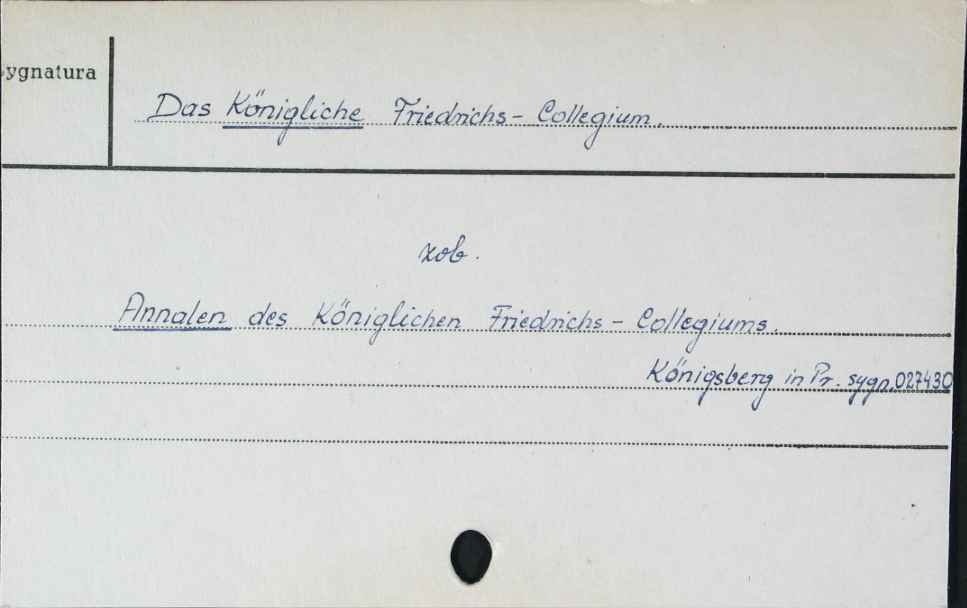 Sygnatura
Das Königliche Friedrichs-Collegium.
zob.
Annalen des Königlichen Friedrichs-Collegiums.
Königsberg in Pr. sygn. 027430